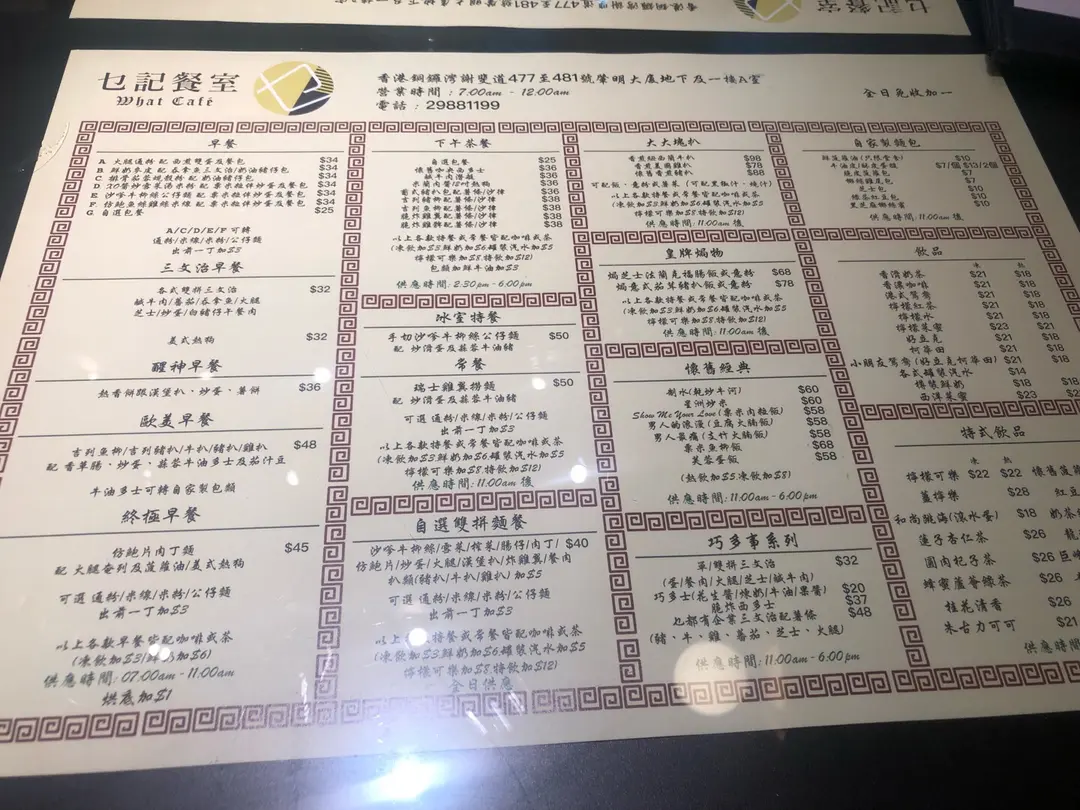 乜記餐室
What Café
香港銅鑼灣謝斐道477至481號肇明大廈地下及一樓A室
營業時間：7:00am - 12:00am
電話：29881199
全日免收加一
早餐
A. 火腿通粉 配 西煎雙蛋及餐包 $34
B. 鮮奶麥皮 配 吞拿魚三文治/奶油豬仔包 $34
$34
D. XO醬炒雪菜湯米粉 配 粟米粒伴炒蛋及餐包 $34
E. 沙嗲牛柳絲公仔麵 配 粟米粒伴炒蛋及餐包 $34
F. 仿鮑魚絲雞絲米線 配 粟米粒伴炒蛋及餐包 $34
G. 自選包餐 $25
A/C/D/E/F 可轉
通粉/米線/米粉/公仔麵
出前一丁加$3
三文治早餐
各式雙拼三文治 $32
鹹牛肉/蕃茄/吞拿魚/火腿
芝士/炒蛋/白豬仔午餐肉
美式熱狗 $32
醒神早餐
熱香餅跟漢堡扒、炒蛋、薯餅 $36
歐美早餐
吉列魚柳/吉列豬扒/牛扒/豬扒/雞扒 $48
配 香草腸、炒蛋、蒜蓉牛油多士及茄汁豆
牛油多士可轉自家製包類
終極早餐
仿鮑片肉丁麵 $45
配 火腿奄列及菠蘿油/美式熱狗
可選 通粉/米線/米粉/公仔麵
出前一丁加$3
以上各款早餐皆配咖啡或茶
(凍飲加$3/鮮奶加$6)
供應時間：07:00am - 11:00am
烘底加$1
下午茶餐
自選包餐 $25
懷舊咖央西多士 $28
$38
$38
葡式豬扒包 配薯條/沙律 $38
吉列豬柳 配薯條/沙律 $38
吉列魚柳 配薯條/沙律 $38
脆炸雞髀 配薯條/沙律 $38
以上各款特餐或常餐皆配咖啡或茶
(凍飲加$3鮮奶加$6罐裝汽水加$5
檸檬可樂加$8特飲加$12)
包類加鮮牛油加$3
供應時間：2:30pm - 6:00pm
冰室特餐
手切沙嗲牛柳絲公仔麵 $50
配 炒滑蛋及蒜蓉牛油豬
常餐
瑞士雞翼撈麵 $50
配 炒滑蛋及蒜蓉牛油豬
可選 通粉/米線/米粉/公仔麵
出前一丁加$3
以上各款特餐或常餐皆配咖啡或茶
(凍飲加$3鮮奶加$6罐裝汽水加$5
檸檬可樂加$8特飲加$12)
供應時間：11:00am 後
自選雙拼麵餐
沙嗲牛柳絲/雪菜/榨菜/腸仔/肉丁/ $40
仿鮑片/炒蛋/火腿/漢堡扒/炸雞翼/餐肉
扒類(豬扒/牛扒/雞扒) 加$5
可選 通粉/米線/米粉/公仔麵
出前一丁加$3
以上各款特餐或常餐皆配咖啡或茶
(凍飲加$3鮮奶加$6罐裝汽水加$5
檸檬可樂加$8特飲加$12)
全日供應
大大塊扒
香煎紐西蘭牛扒 $98
$78
懷舊香煎豬扒 $88
可配飯、意粉或薯菜 (可配黑椒汁、燒汁)
以上各款特餐或常餐皆配咖啡或茶
(凍飲加$3鮮奶加$6罐裝汽水加$5
檸檬可樂加$8特飲加$12)
供應時間：11:00am 後
皇牌焗物
焗芝士法蘭克福腸飯或意粉 $68
焗意式茄茸豬扒飯或意粉 $78
以上各款特餐或常餐皆配咖啡或茶
(凍飲加$3鮮奶加$6罐裝汽水加$5
檸檬可樂加$8特飲加$12)
供應時間：11:00am 後
懷舊經典
制水(乾炒牛河) $60
星洲炒米 $60
Show Me Your Love (粟米肉粒飯) $58
男人的浪漫 (豆腐火腩飯) $58
男人最痛 (支竹火腩飯) $58
粟米魚柳飯 $68
芙蓉蛋飯 $58
(熱飲加$5凍飲加$8)
供應時間：11:00am - 6:00pm
巧多事系列
單/雙拼三文治 $32
(蛋/餐肉/火腿/芝士/鹹牛肉)
巧多士(花生醬/煉奶/牛油/果醬) $20
脆炸西多士 $37
乜都有企業三文治配薯條 $48
(豬、牛、雞、蕃茄、芝士、火腿)
供應時間：11:00am - 6:00pm
自家製麵包
鮮菠蘿油 (只限堂食) $10
$7/個 $13/2個
脆皮菠蘿包 $7
$7
芝士包 $10
綠茶紅豆包 $10
$10
供應時間：11:00am 後
飲品
凍 熱
香濃奶茶 $21 $18
香濃咖啡 $21 $18
港式鴛鴦 $21 $18
檸檬紅茶 $21 $18
檸檬水 $21 $18
檸檬菜蜜 $23 $21
好立克 $21 $18
阿華田 $21 $18
小朋友鴛鴦 (好立克阿華田) $21 $18
各式罐裝汽水 $14
樽裝鮮奶 $18 $18
西洋菜蜜 $23
特式飲品
凍 熱
檸檬可樂 $22 $22
蓋檸樂 $28
和尚跳海(滾水蛋) $18
蓮子杏仁茶 $26
圓肉杞子茶 $26
蜂蜜蘆薈綠茶 $26
桂花清香 $26
朱古力可可 $21
紅豆
奶茶
供應時間